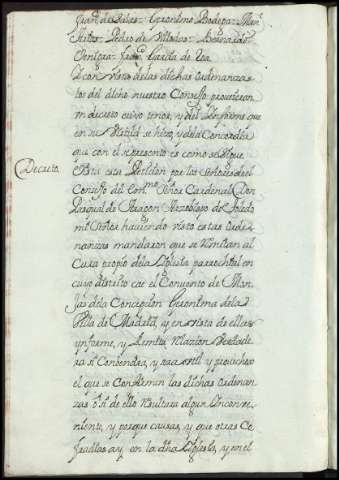 Juan de Dalvo = Geronimo Bodega = Man
Santos = Pedro de Villodas = Bernardo
Ventura = Juan Garcia de Zea
Y con vista de las dichas ordenanzas
los del dicho nuestro Consejo proveieron
un decreto cuio tenor, y del Informe que
en su Virtud se hizo, y de la Concordia
que con el se presento es como se sigue
Decreto
Vista esta Petizion por los Señores del
Consejo del Cardenal Don
Pasqual de Aragon Arzobispo de Toledo
mi Señor haviendo visto estas orde-
nanzas mandaron que se remitan al
Cura propio de la Yglesia parrochial en
cuyo distrito cae el Convento de Mon
jas de la Concepcion Geronima de la
Villa de Madrid, y en vista de ellas
ynforme, y remita Relazion verdade
ra si Convendra, y sea util y provechoso
el que se Confirmen las dichas ordenan
zas o si de ello resultara algun Inconve-
niente, y porque causas, y que otras Co
fradias ay en la dha Yglesia, y en el